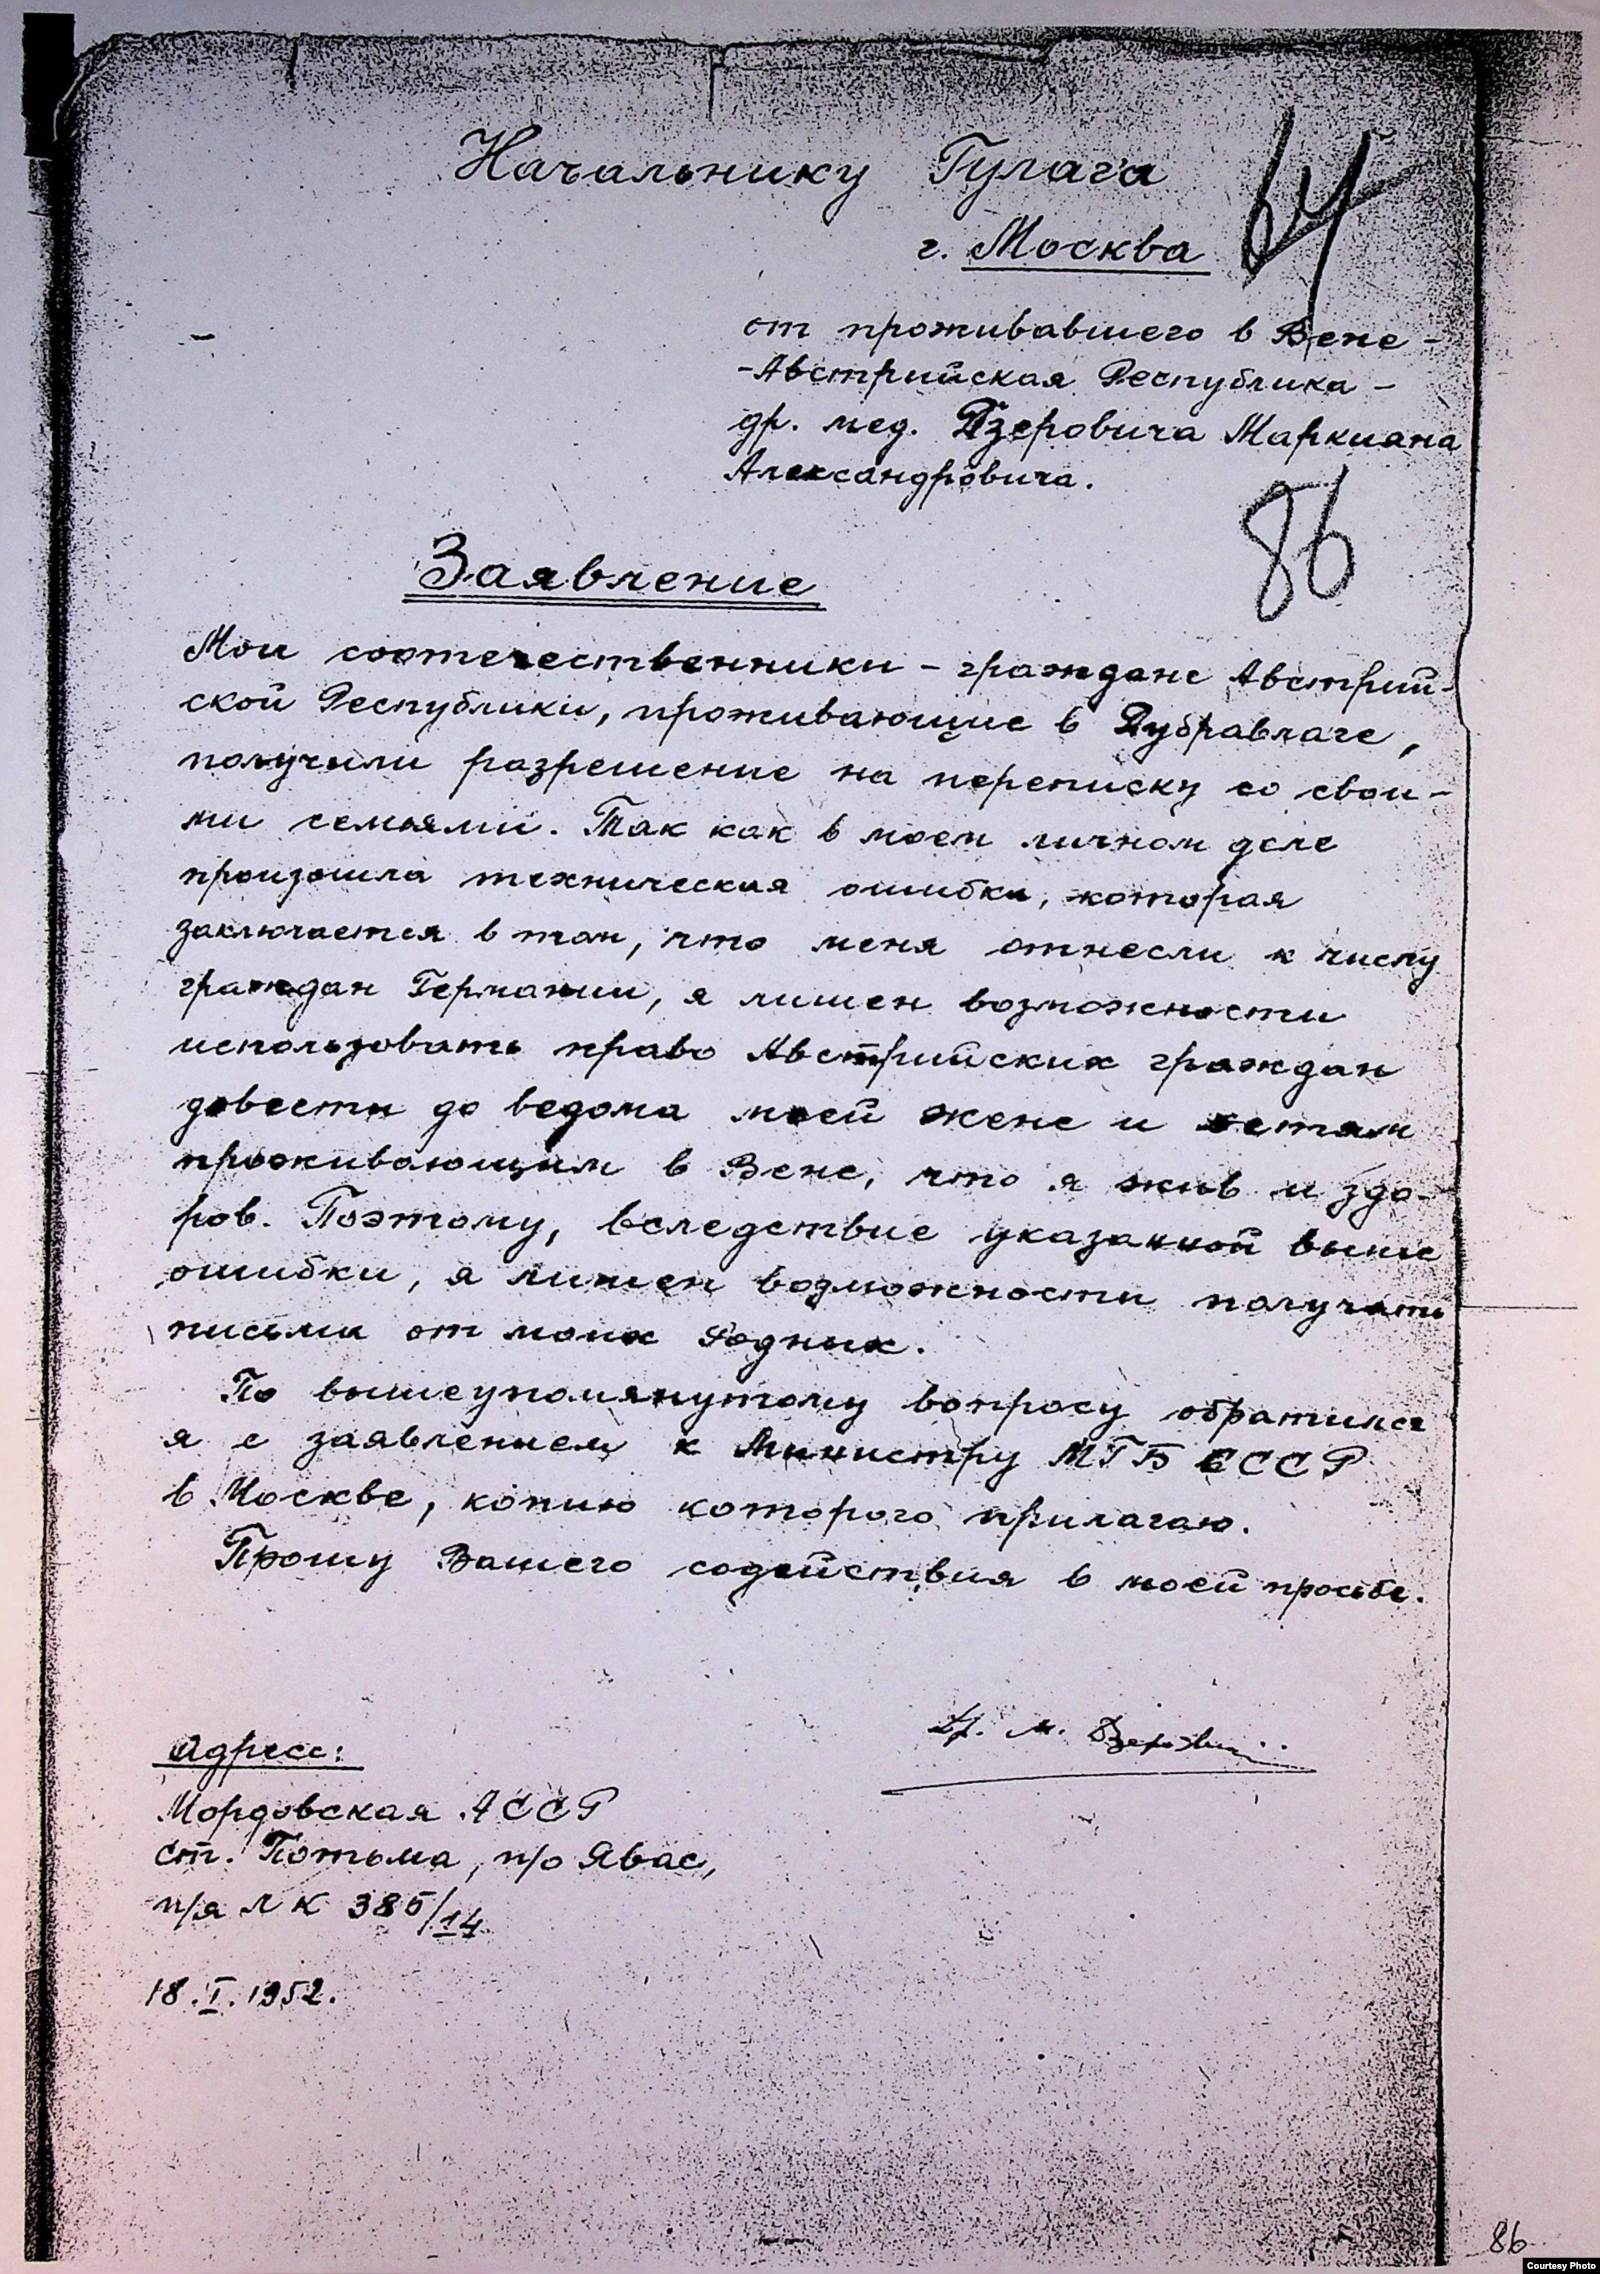 Начальнику Гулага
г. Москва
64
от проживавшего в Вене -
- Австрийская Республика -
др. мед. Дзеровича Маркиана
Александровича.
86
Заявление
Мои соотечественники - граждане Австрий-
ской Республики, проживающие в Дубравлаге,
получили разрешение на переписку со свои-
ми семьями. Так как в моем личном деле
произошла техническая ошибка, которая
заключается в том, что меня отнесли к числу
граждан Германии, я лишен возможности
использовать право Австрийских граждан
довести до ведома моей жене и детям
проживающим в Вене, что я жив и здо-
ров. Поэтому, вследствие указанной выше
ошибки, я лишен возможности получать
письма от моих родных.
По вышеупомянутому вопросу обратился
я с заявлением к Министру МГБ СССР
в Москве, копию которого прилагаю.
Прошу Вашего содействия в моей просьбе.
Др. М. Дзерович
Адресс:
Мордовская АССР
ст. Потьма, п/о Явас,
п/я ЛК 385/14
18.I.1952.
86
Courtesy Photo